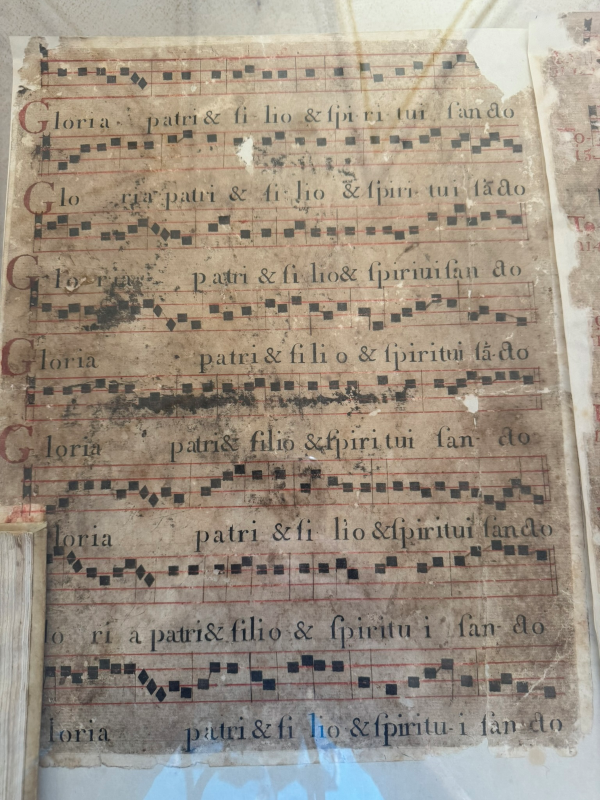 Gloria patri & fi lio & ſpi ri tui ſan cto
Glo ria patri & fi lio & ſpiri tui ſācto
Glo ria patri & fi lio & ſpiriui ſan cto
Gloria patri & fi li o & ſpiritui ſā cto
Gloria patri & filio & ſpiri tui ſan cto
loria patri & fi lio & ſpiritui ſancto
lo ri a patri & filio & ſpiritu i ſan cto
loria patri & fi lio & ſpiritu i ſan cto